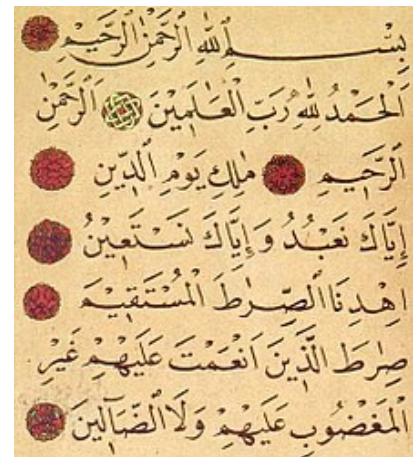 بِسْمِ اللّٰهِ الرَّحْمٰنِ الرَّحِيمِ
اَلْحَمْدُ لِلّٰهِ رَبِّ الْعَالَمِينَ اَلرَّحْمٰنِ
الرَّحِيمِ مٰلِكِ يَوْمِ الدِّينِ
اِيَّاكَ نَعْبُدُ وَاِيَّاكَ نَسْتَعِينُ
اِهْدِنَا الصِّرٰطَ الْمُسْتَقِيمَ
صِرٰطَ الَّذِينَ اَنْعَمْتَ عَلَيْهِمْ غَيْرِ
الْمَغْضُوبِ عَلَيْهِمْ وَلَا الضَّٓالِّينَ